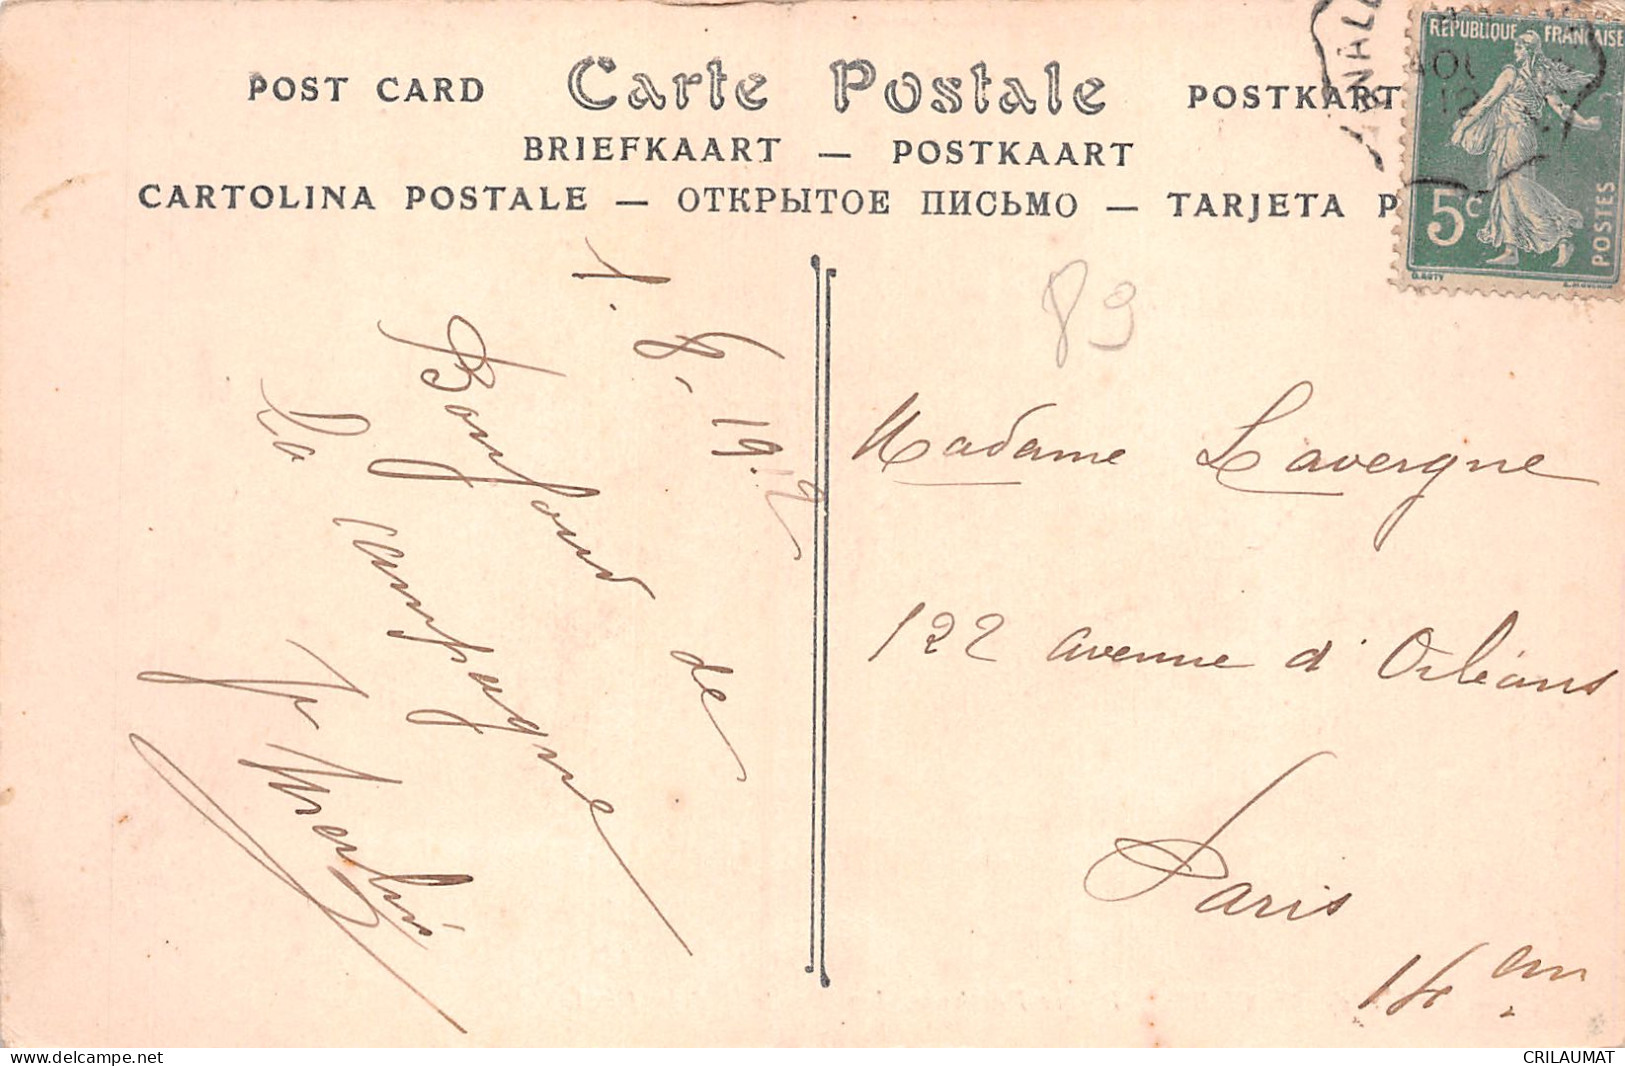 POST CARD Carte Postale POSTKART
BRIEFKAART — POSTKAART
CARTOLINA POSTALE — ОТКРЫТОЕ ПИСЬМО — TARJETA P
REPUBLIQUE FRANÇAISE
5c
POSTES
AOU
12
89
1. 8. 19.12
Bonjour de
La campagne
Madame Lavergne
122 avenue d'Orléans
Paris
14em
delcampe.net
CRILAUMAT